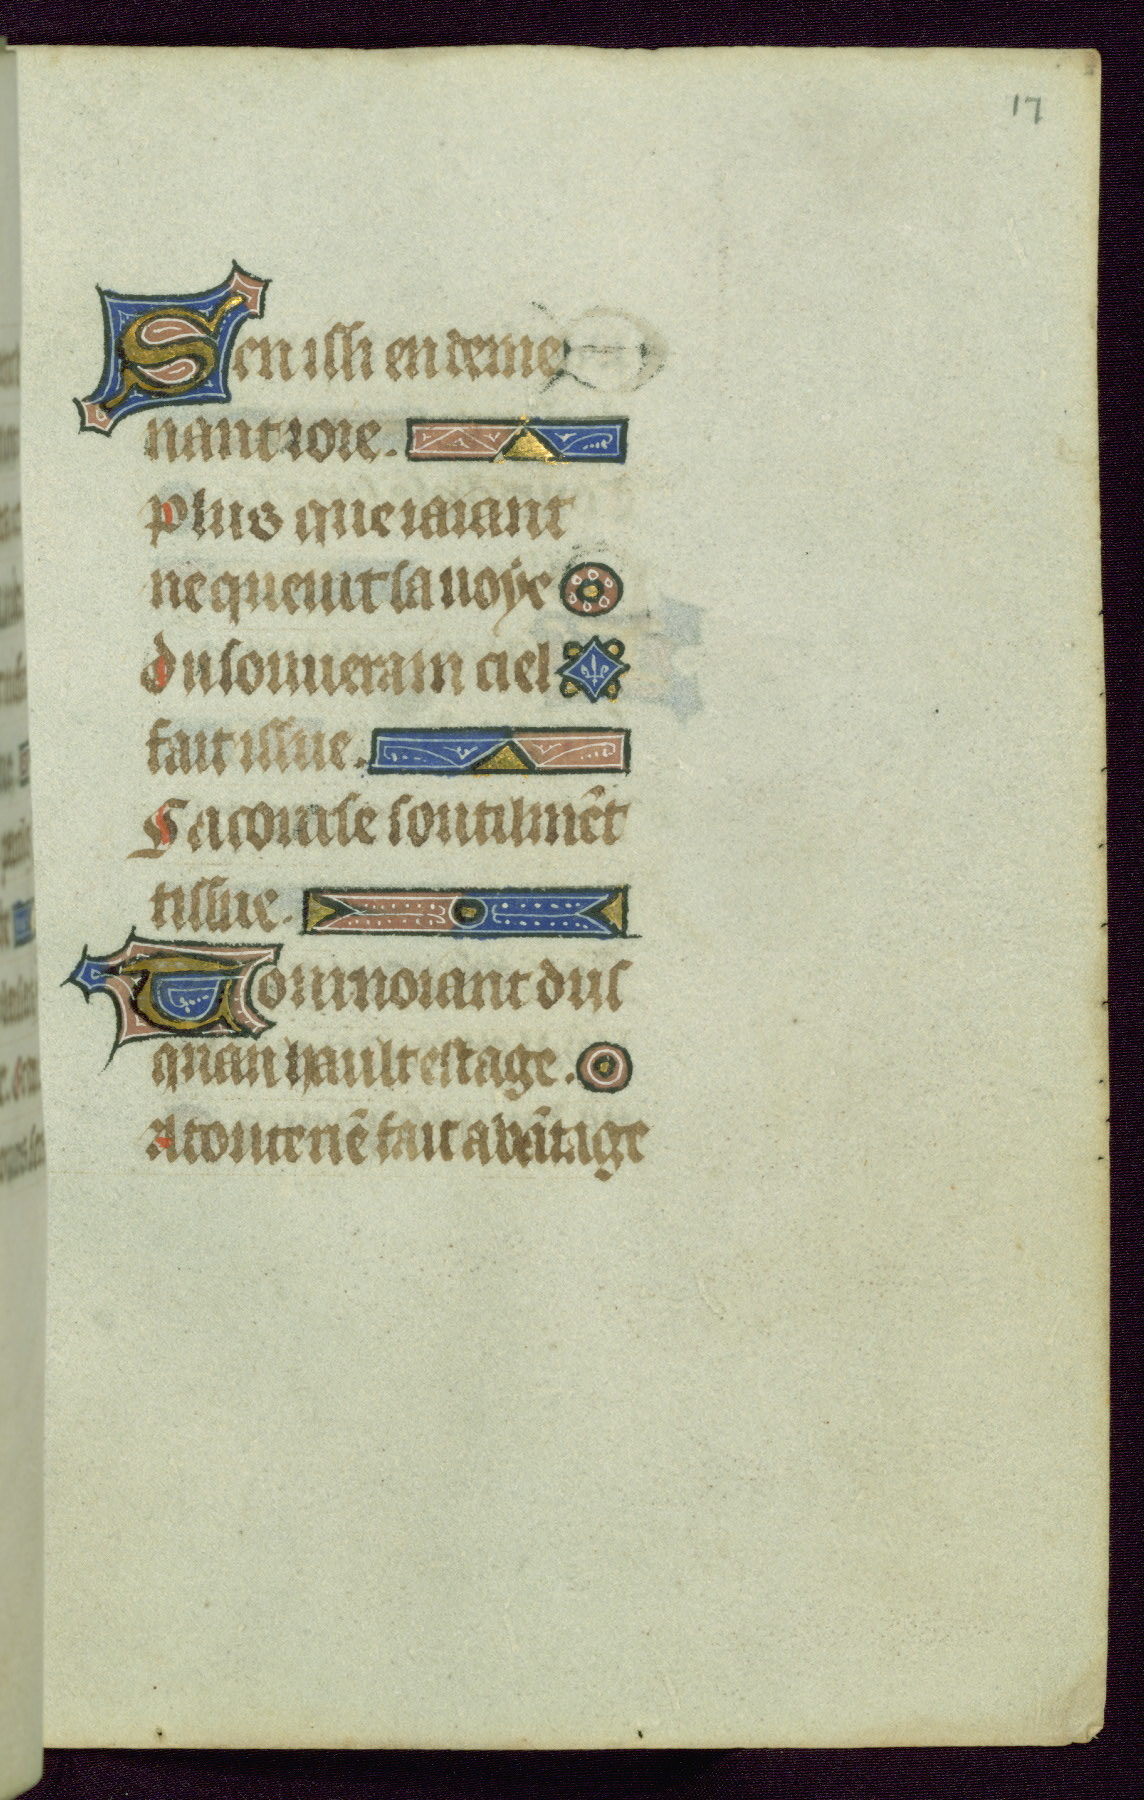 17
Sen issi en deme
nant ioie.
plus que iaiant
ne queurt sa uoye
du souuerain ciel
fait issue.
Sa corute soutilmẽt
tissue.
Tournoiant dus
quau hault estage.
A tout enẽ fait abãtage